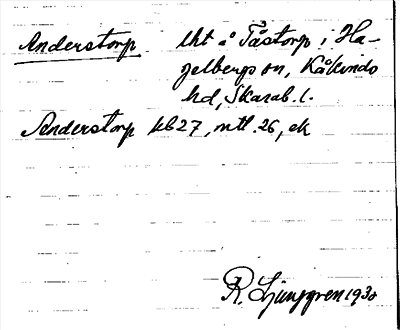 Anderstorp lht å Tåstorp i Ha-
gelbergs sn, Kåkinds
hd, Skarab. l.
Anderstorp kb 27, mtl. 26, ek
R. Ljunggren 1930